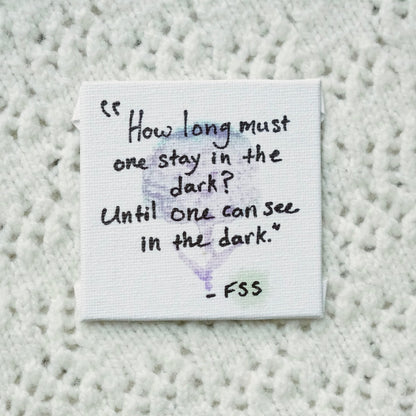 "How long must
one stay in the
dark?
Until one can see
in the dark."
- FSS